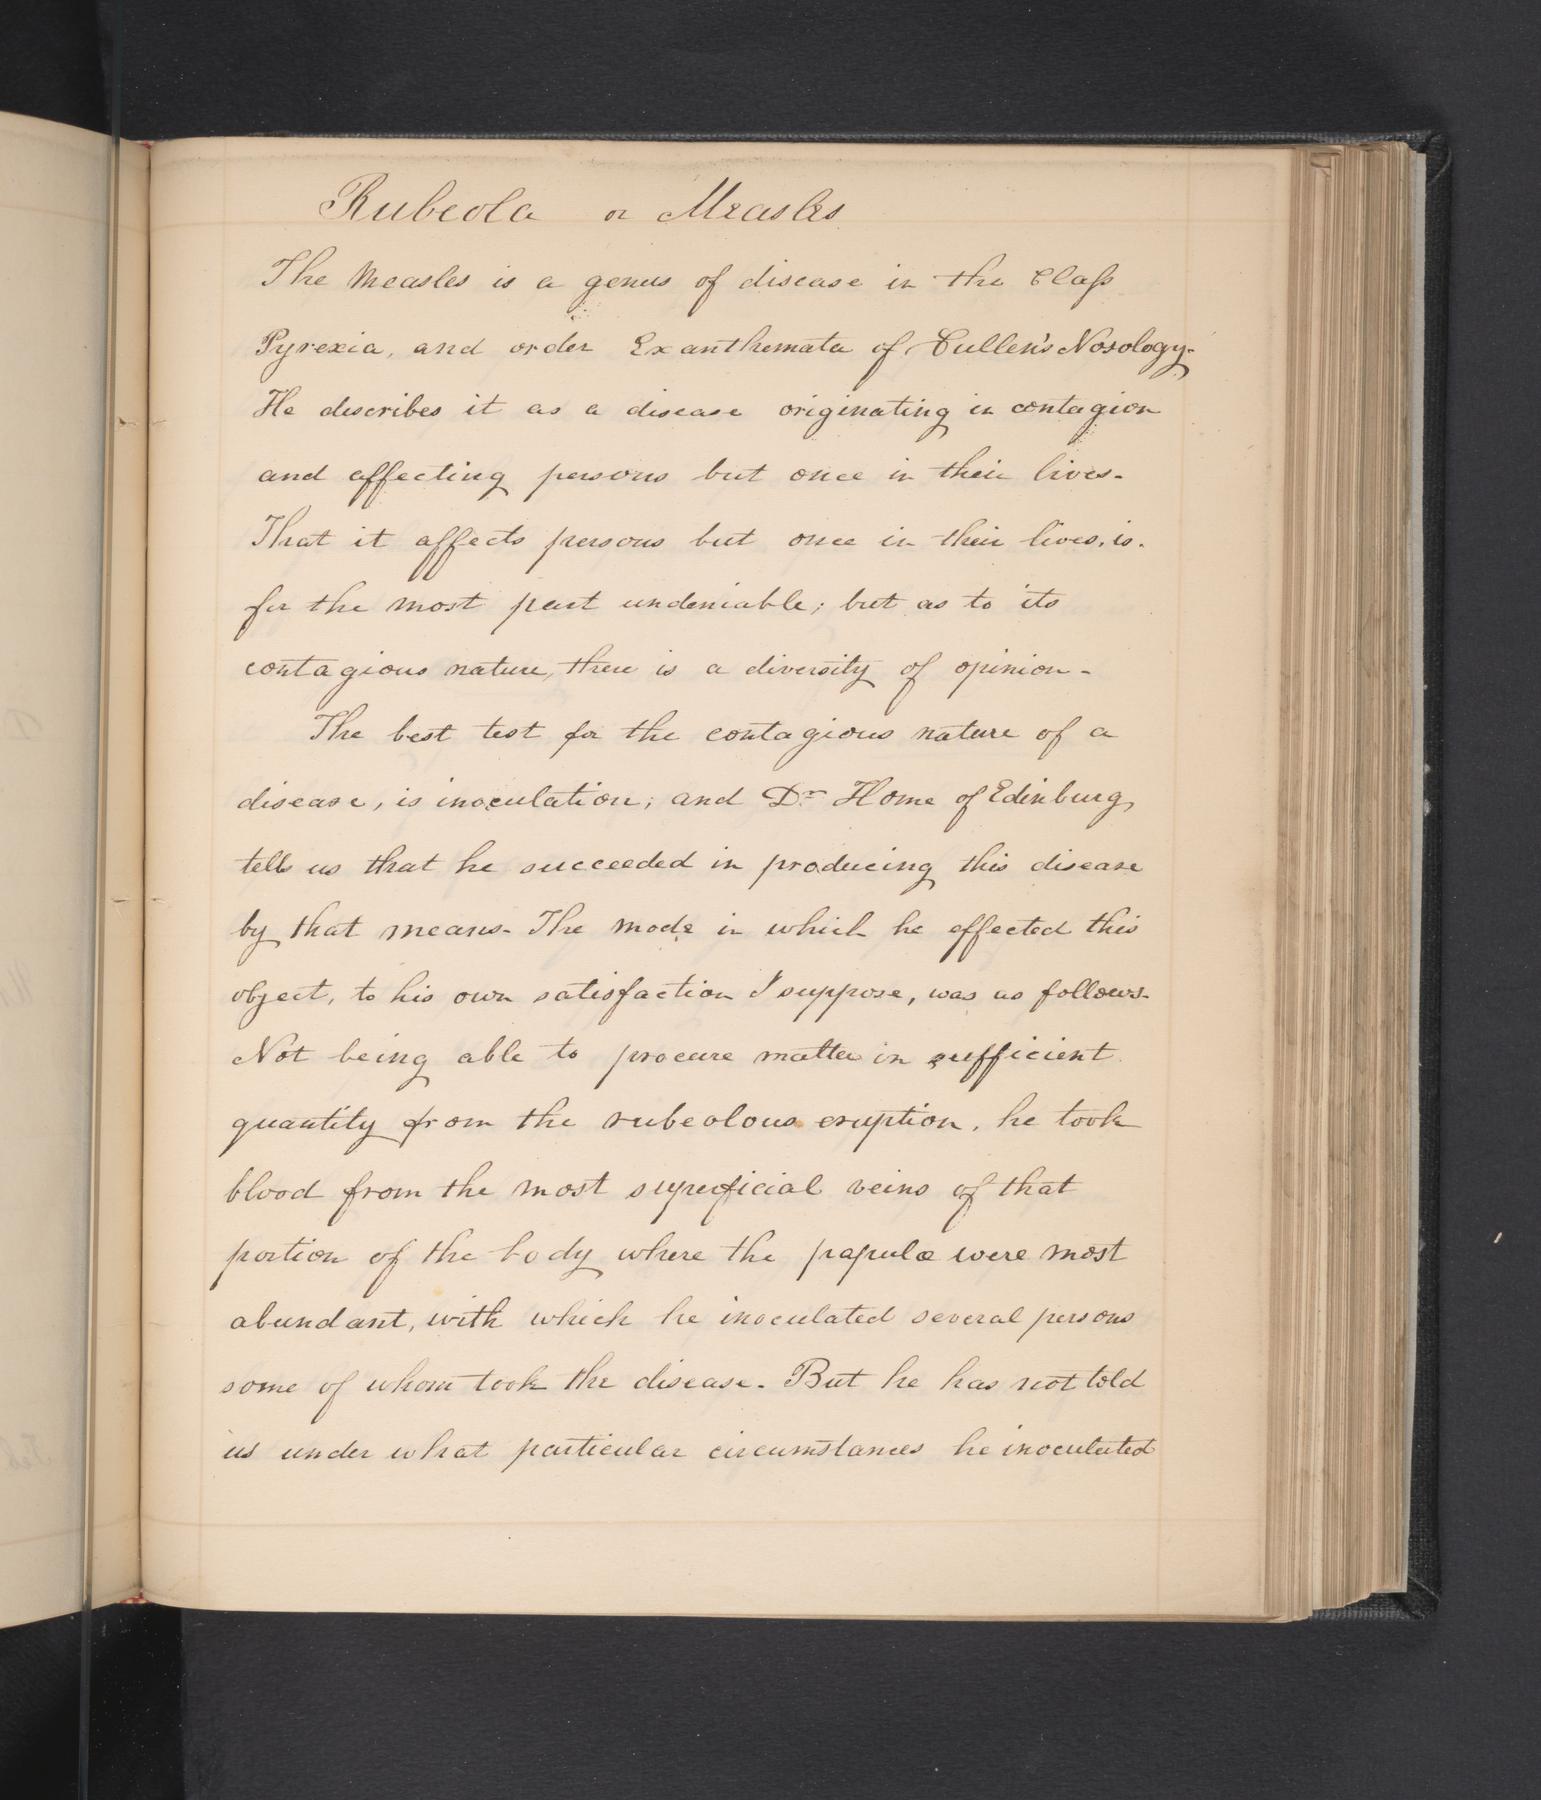 Rubeola or Measles
The Measles is a genus of disease in the Claſs
Pyrexia, and order Exanthemata of Cullen's Nosology.
He describes it as a disease originating in contagion
and affecting persons but once in their lives.
That it affects persons but once in their lives, is.
for the most part undeniable; but as to its
contagious nature, there is a diversity of opinion.
The best test for the contagious nature of a
disease, is inoculation; and Dr Home of Edinburg,
tells us that he succeeded in producing this disease
by that means. The mode in which he effected this
object, to his own satisfaction I suppose, was as follows.
Not being able to procure matter in sufficient
quantity from the rubeolous eruption, he took
blood from the most superficial veins of that
portion of the body where the papulæ were most
abundant, with which he inoculated several persons
some of whom took the disease. But he has not told
us under what particular circumstances he inoculated